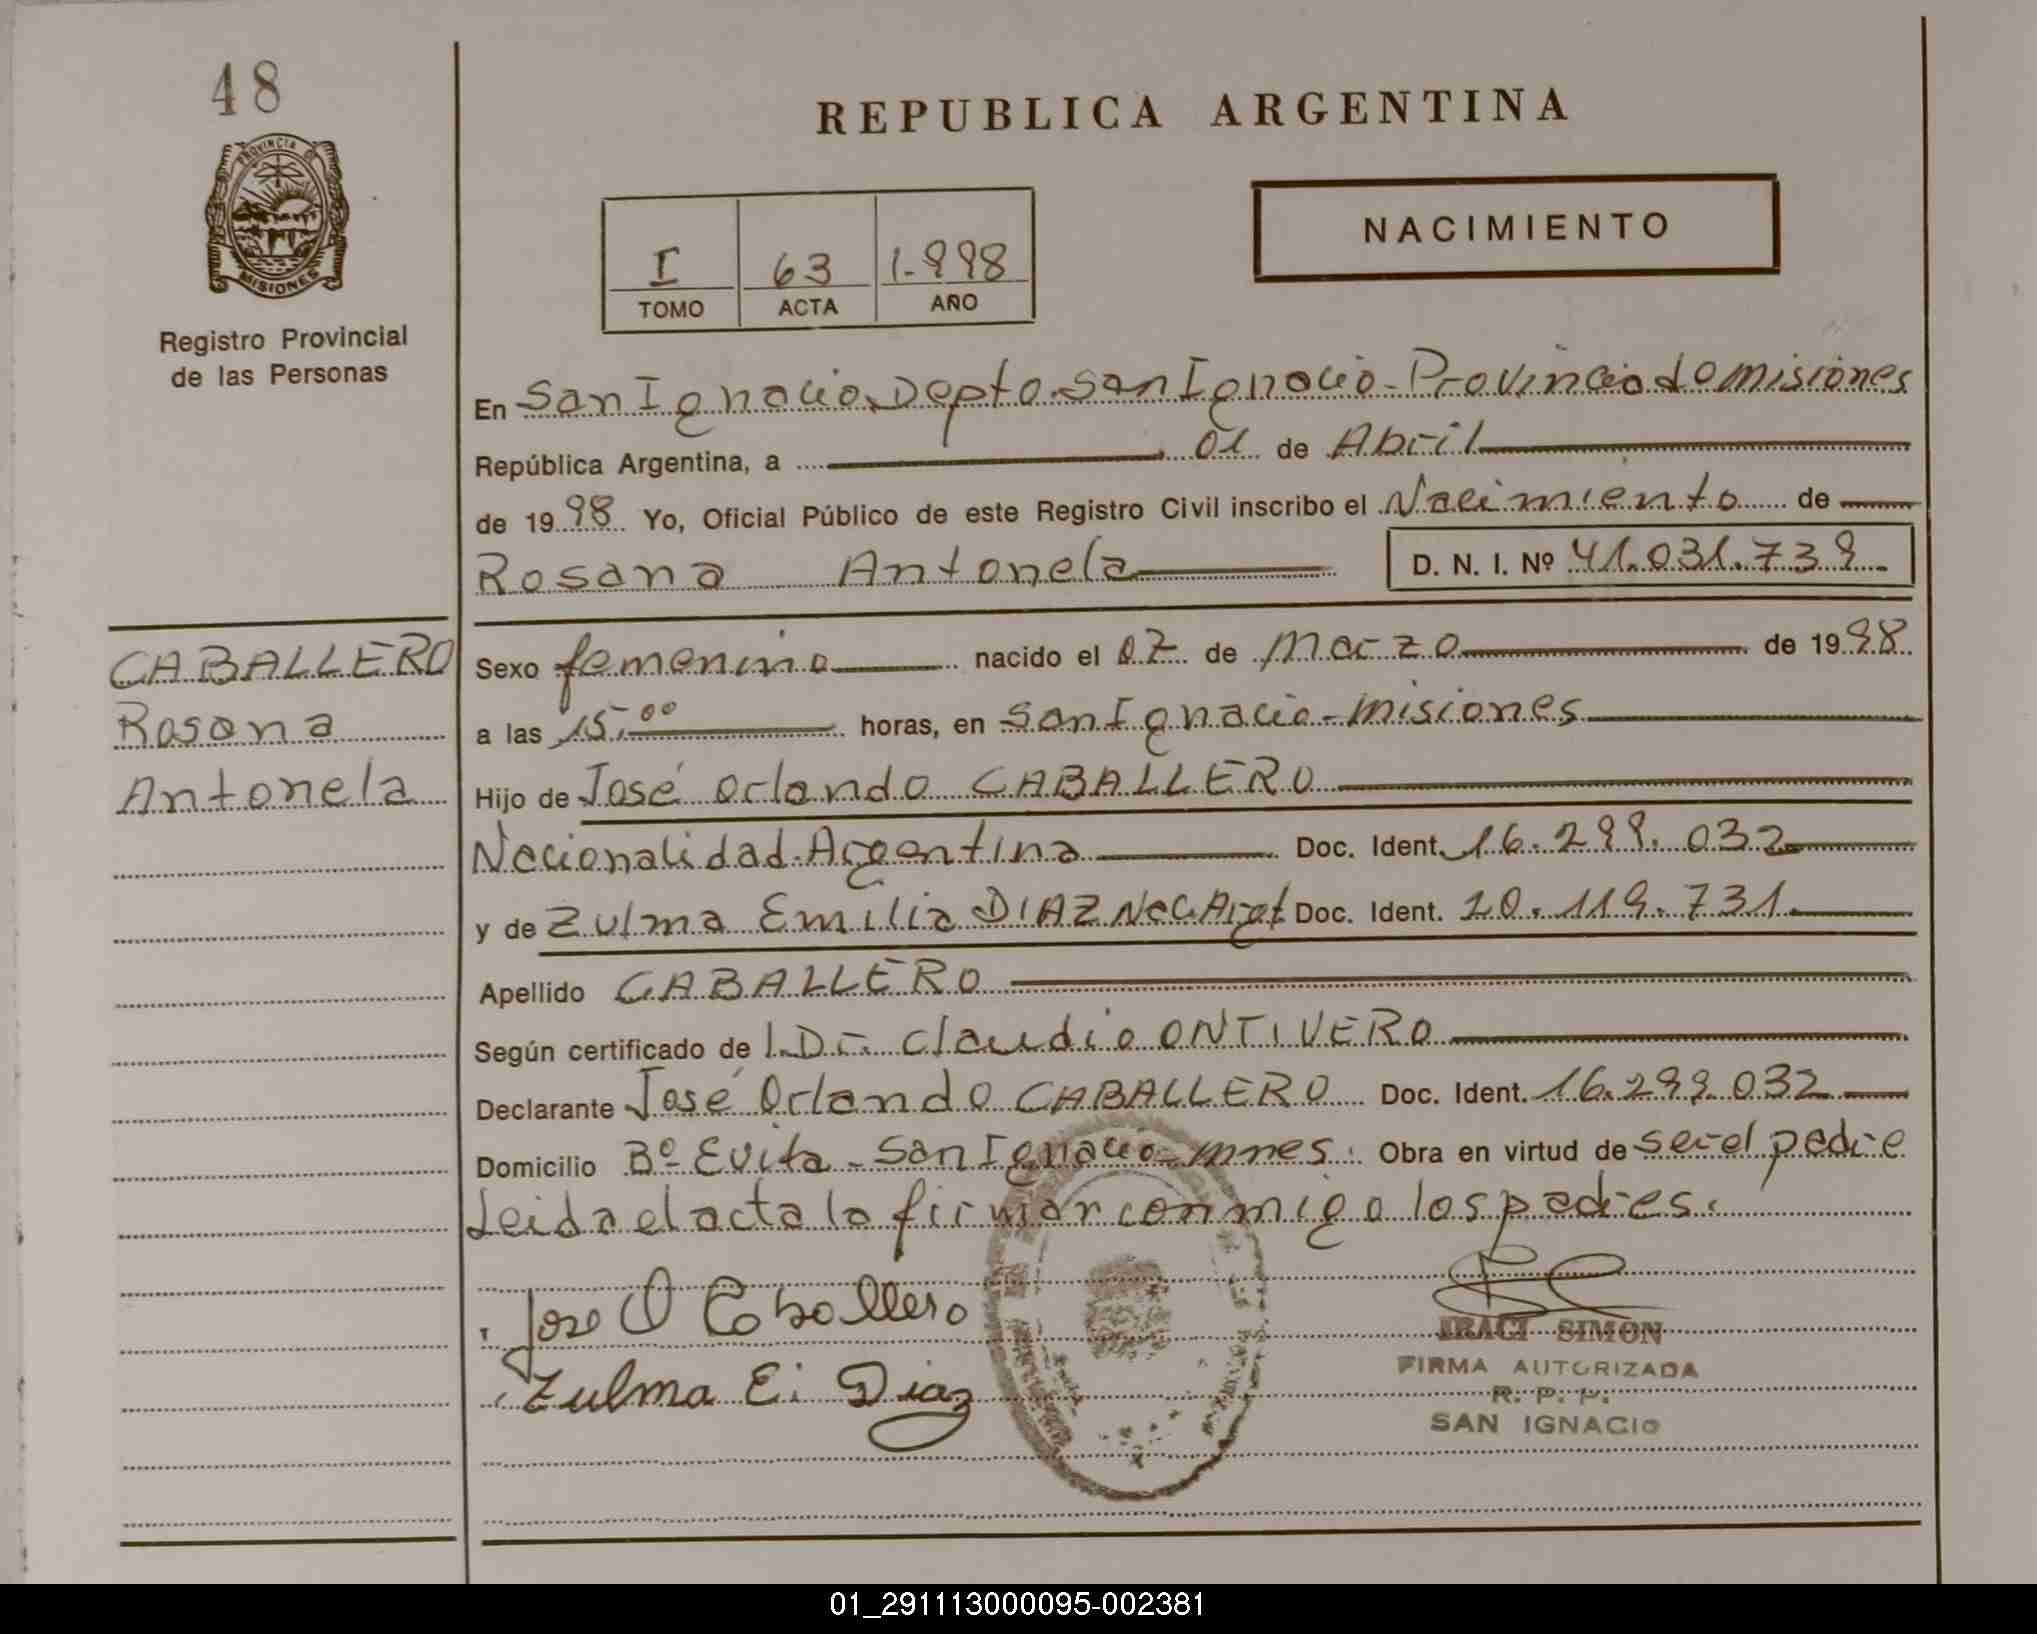 48
PROVINCIA DE
MISIONES
Registro Provincial
de las Personas
REPUBLICA ARGENTINA
I 63 1.998
TOMO ACTA AÑO
NACIMIENTO
En San Ignacio Depto. San Ignacio - Provincia de misiones
República Argentina, a 01 de Abril
de 1998 Yo, Oficial Público de este Registro Civil inscribo el Nacimiento de
Rosana Antonela D. N. I. Nº 41.031.739
CABALLERO
Rosana
Antonela
Sexo femenino nacido el 07 de Marzo de 1998
a las 15,00 horas, en San Ignacio - misiones
Hijo de José Orlando CABALLERO
Nacionalidad Argentina Doc. Ident. 16.299.032
y de Zulma Emilia DIAZ Doc. Ident. 20.119.731
Apellido CABALLERO
Según certificado de Claudio ONTIVERO
Declarante José Orlando CABALLERO Doc. Ident. 16.299.032
Domicilio Bº Evita - San Ignacio - mnes. Obra en virtud de ser el padre
Leida el acta la firman conmigo los padres.
Jose O Caballero
Zulma E. Diaz
IRACI SIMON
FIRMA AUTORIZADA
R. P. P.
SAN IGNACIO
01_291113000095-002381